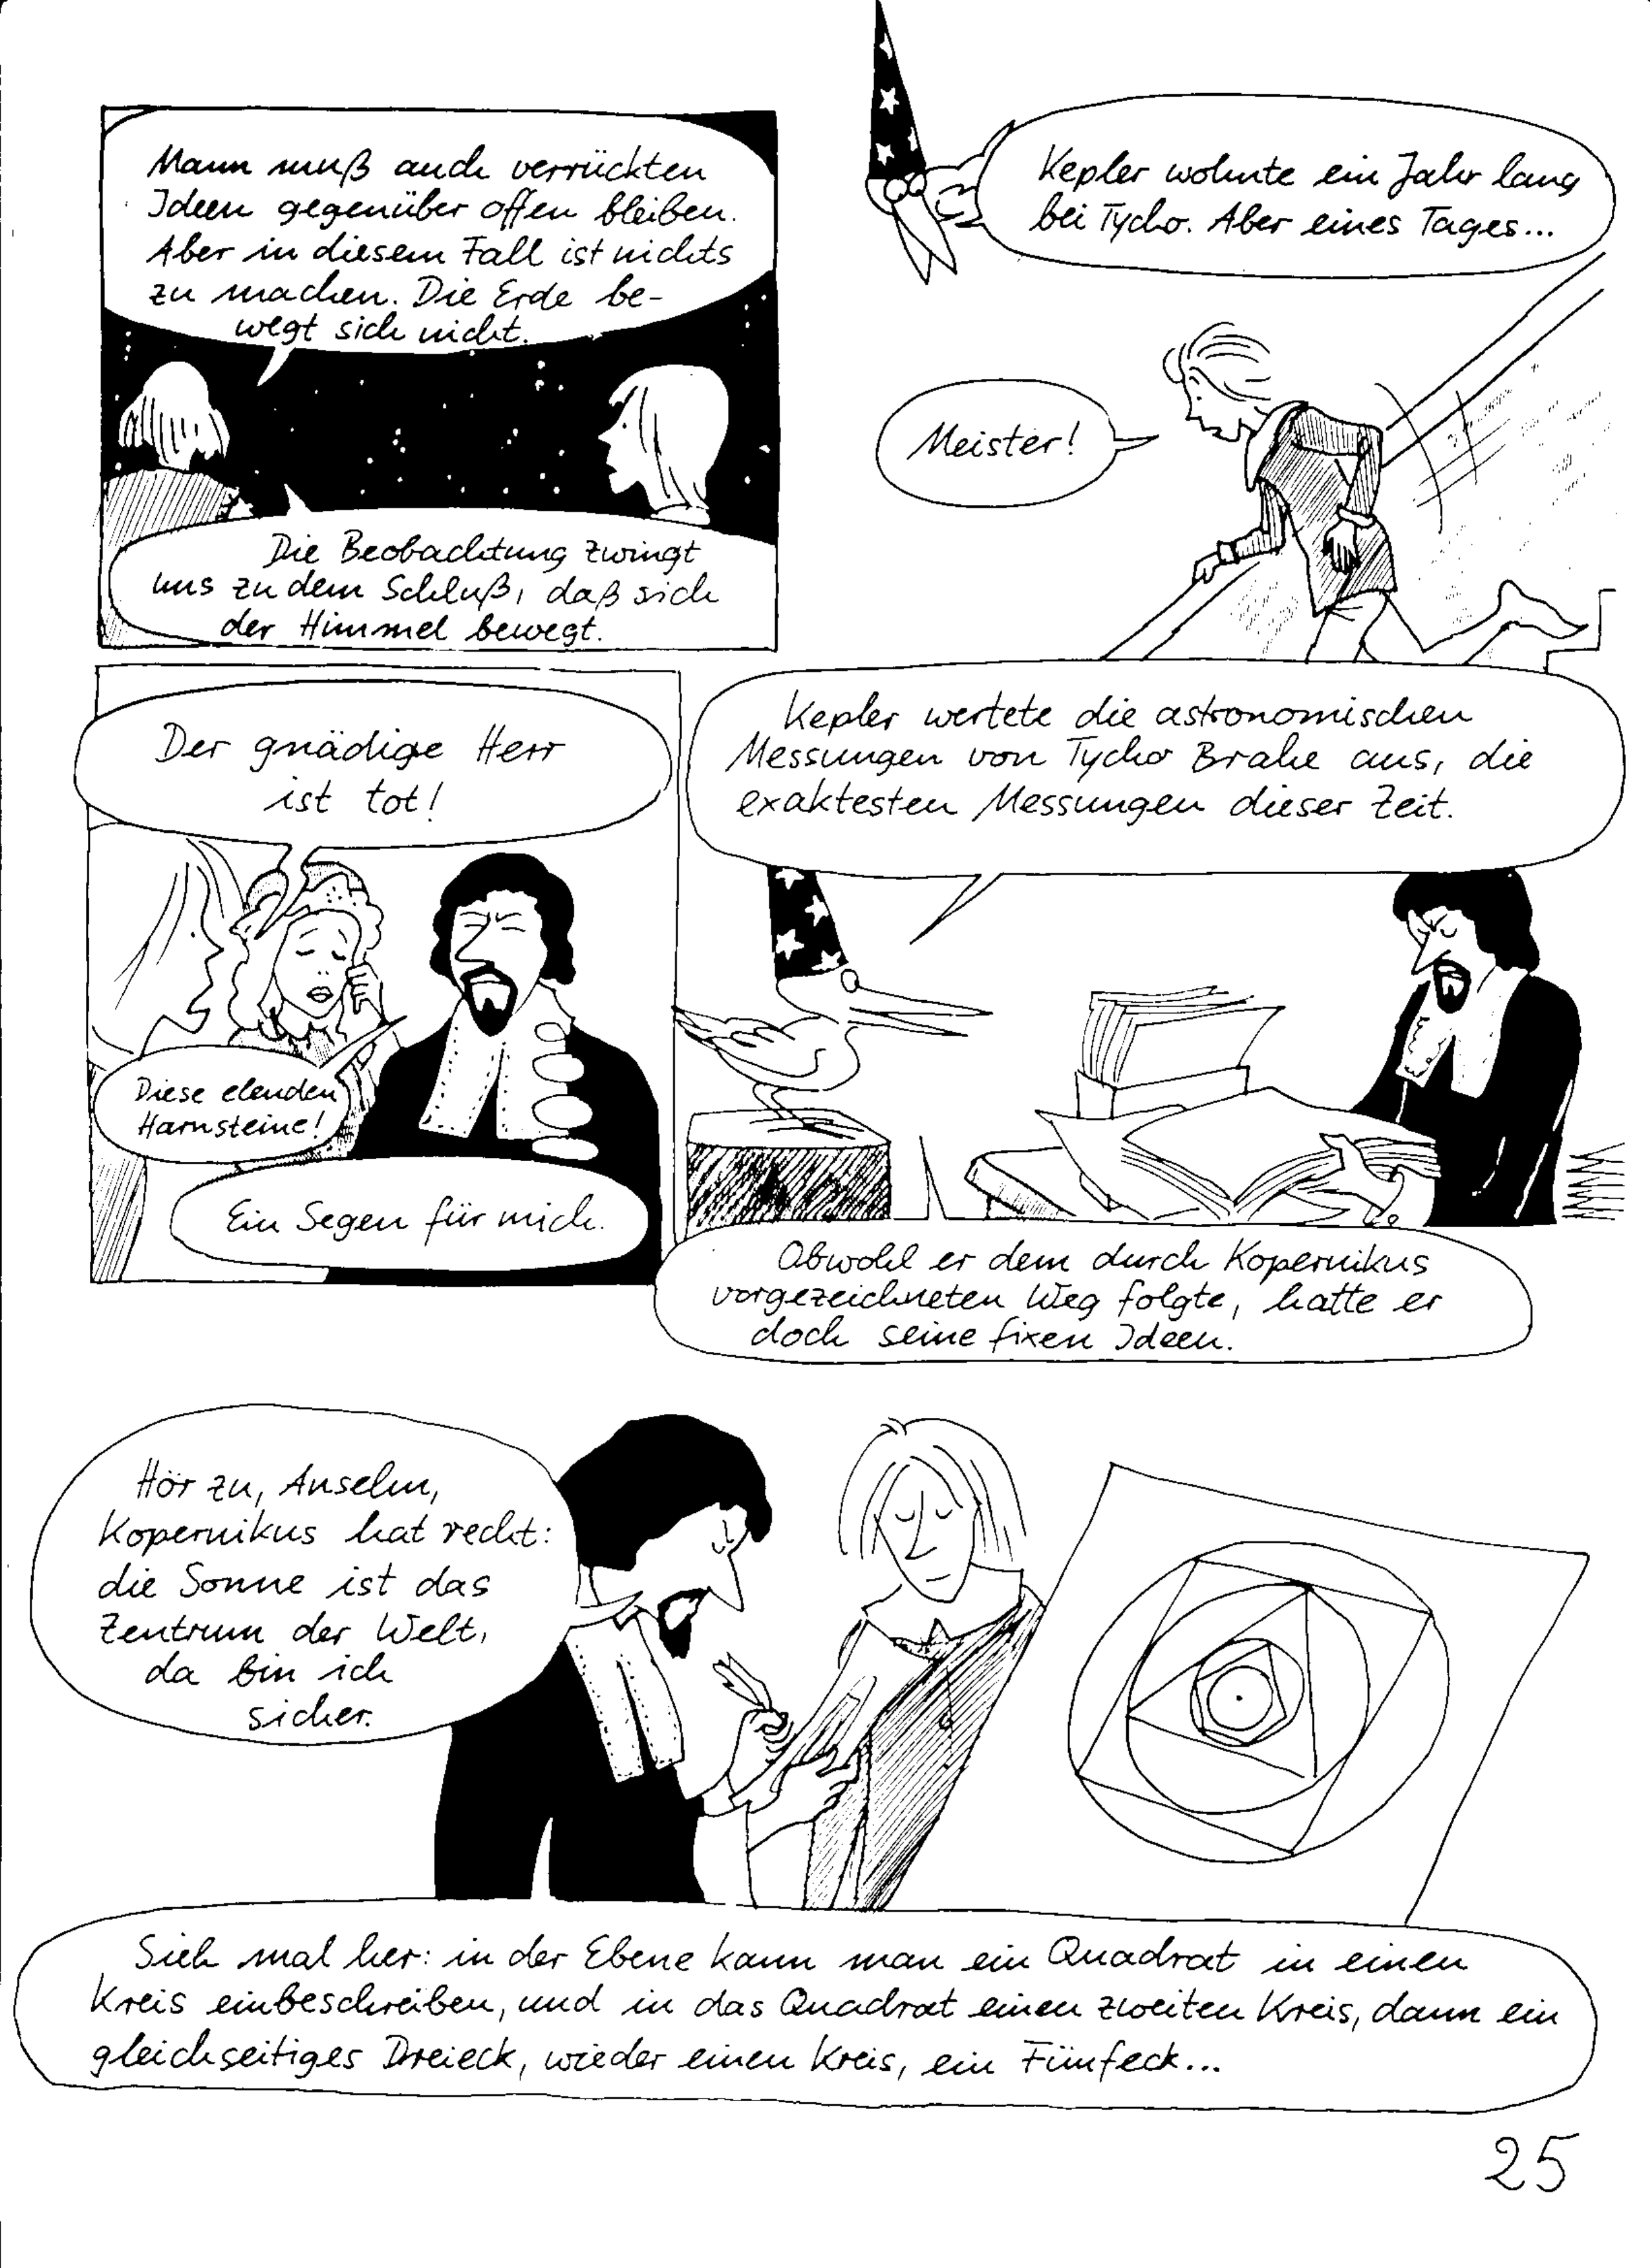 Mann muß auch verrückten
Ideen gegenüber offen bleiben.
Aber in diesem Fall ist nichts
zu machen. Die Erde be-
wegt sich nicht.
Die Beobachtung zwingt
uns zu dem Schluß, daß sich
der Himmel bewegt.
Kepler wohnte ein Jahr lang
bei Tycho. Aber eines Tages...
Meister!
Der gnädige Herr
ist tot!
Diese elenden
Harnsteine!
Ein Segen für mich.
Kepler wertete die astronomischen
Messungen von Tycho Brahe aus, die
exaktesten Messungen dieser Zeit.
Obwohl er dem durch Kopernikus
vorgezeichneten Weg folgte, hatte er
doch seine fixen Ideen.
Hör zu, Anselm,
Kopernikus hat recht:
die Sonne ist das
Zentrum der Welt,
da bin ich
sicher.
Sieh mal her: in der Ebene kann man ein Quadrat in einen
Kreis einbeschreiben, und in das Quadrat einen zweiten Kreis, dann ein
gleichseitiges Dreieck, wieder einen Kreis, ein Fünfeck...
25